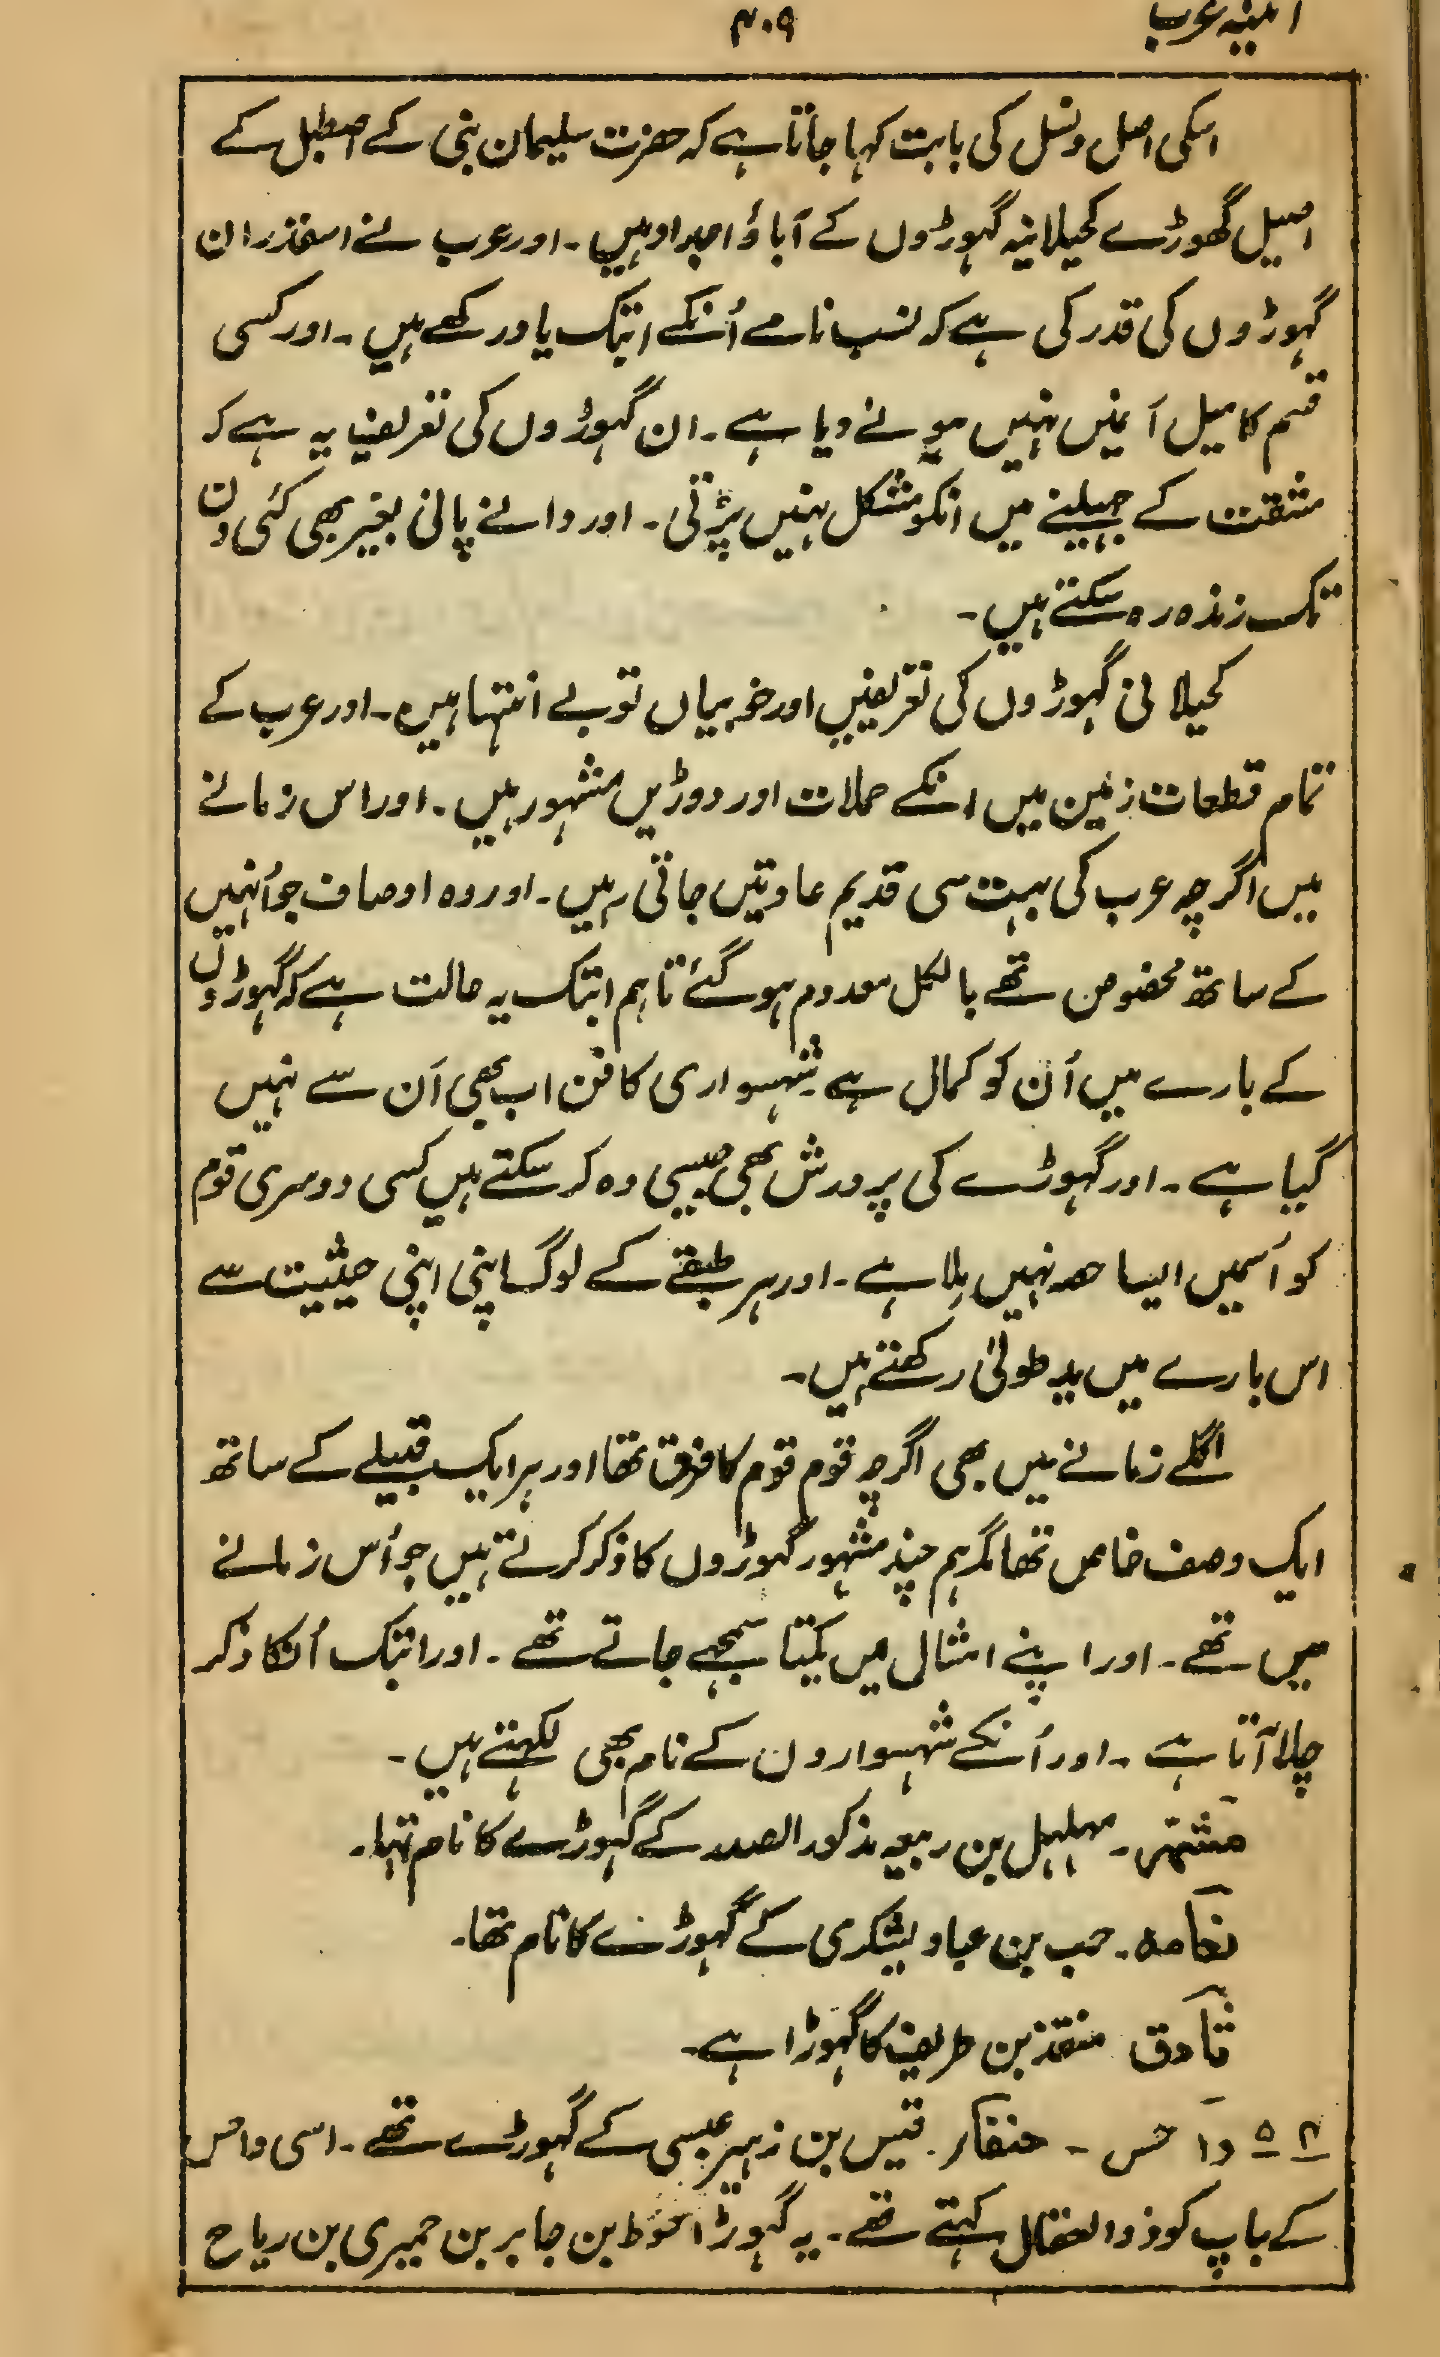 آئینہ عرب ۴۰۹
اسکی اصل ونسل کی بابت کہا جاتا ہے کہ حضرت سلیمان بنی کے اصطبل کے
اصیل گھوڑے کحیلانیہ گہوڑوں کے آباؤ اجداد ہیں۔ اور عرب نے اسقذر ان
گہوڑوں کی قدر کی ہے کہ نسب نامے اُنکے ابتک یاد رکھے ہیں۔ اور کسی
قسم کا میل آنمیں نہیں ہونے دیا ہے۔ ان گہوڑوں کی تعریف یہ ہے کہ
مشقت کے جہیلنے میں انکو مشکل نہیں پڑتی۔ اور دانے پانی بغیر بھی کئی دن
تک زندہ رہ سکتے ہیں۔
کحیلانی گہوڑوں کی تعریفیں اور خوبیاں تو بے انتہا ہیں۔ اور عرب کے
تمام قطعات زمین میں انکے حملات اور دوڑیں مشہور ہیں۔ اور اس زمانے
میں اگرچہ عرب کی بہت سی قدیم عادتیں جاتی رہیں۔ اور وہ اوصاف جو اُنہیں
کے ساتھ مخصوص تھے بالکل معدوم ہوگئے تاہم ابتک یہ حالت ہے کہ گہوڑوں
کے بارے میں اُن کو کمال ہے شہسواری کا فن اب بھی اُن سے نہیں
گیا ہے۔ اور گہوڑے کی پرورش بھی جیسی وہ کر سکتے ہیں کسی دوسری قوم
کو اُسمیں ایسا حصہ نہیں مِلا ہے۔ اور ہر طبقے کے لوگ اپنی اپنی حیثیت سے
اس بارے میں یدِ طولیٰ رکھتے ہیں۔
اگلے زمانے میں بھی اگرچہ قوم قوم کا فرق تھا اور ہر ایک قبیلے کے ساتھ
ایک وصف خاص تھا مگر ہم چند مشہور گہوڑوں کا ذکر کرتے ہیں جو اُس زمانے
میں تھے۔ اور اپنے امثال میں یکتا سمجھے جاتے تھے۔ اور ابتک اُنکا ذکر
چلا آتا ہے۔ اور اُنکے شہسواروں کے نام بھی لکہتے ہیں۔
مشتہر۔ مہلہل بن ربیعہ مذکور الصدر کے گہوڑے کا نام تہا۔
نعامہ۔ حب بن عباد یشکری کے گہوڑے کا نام تھا۔
ثادق منقذ بن طریف کا گہوڑا ہے۔
داحس۔ حنفار۔ قیس بن زہیر عبسی کے گہوڑے تھے۔ اسی داحس
کے باپ کو ذوالعقال کہتے تھے۔ یہ گہوڑا حوط بن جابر بن حمیری بن ریاح